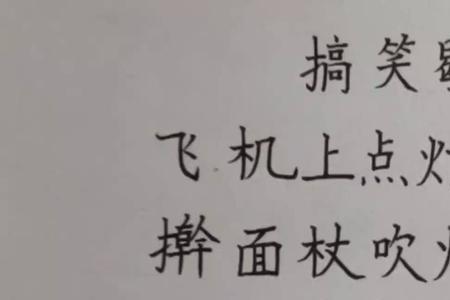 搞笑
飞机上点
擀面杖吹